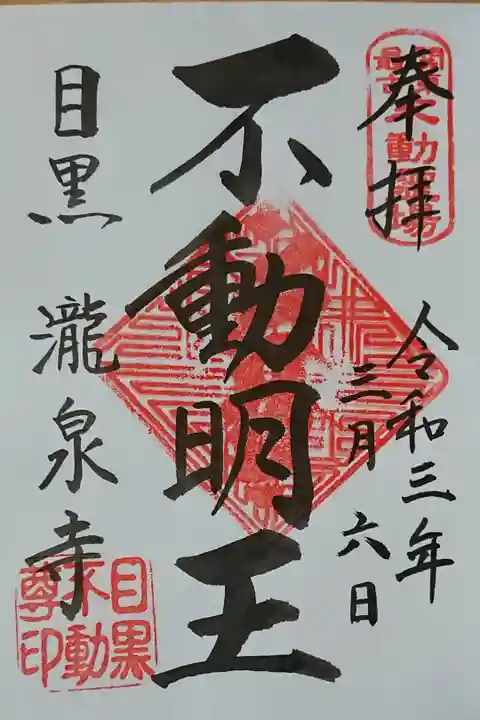 奉拝
令和三年
三月六日
不動明王
目黒 瀧泉寺
目黒
不動
尊印